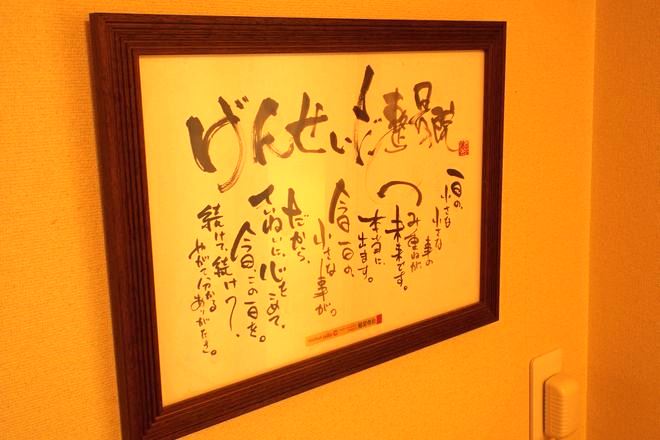 げんせいどう整骨院
一日の、
小さな
小さな
事の
つみ重ねが
未来です。
本当に、
出ます。
今日一日の、
小さな事が。
だから、
ていねいに、心をこめて、
今日この一日を。
続けて、続けて、
やがて分かる
ありがたさ。